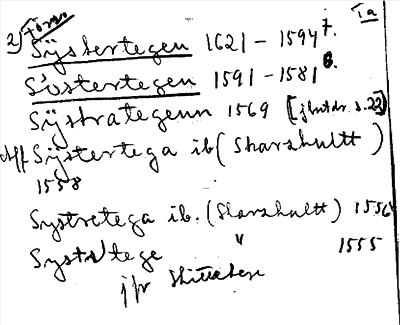 2) Torp
Ia
Sÿstertegen 1621 – 1594 7.
Sÿstertegen 1591 – 1581 8.
Sÿstrategenn 1569 [jbutdr. s. 22]
Sÿstertega ib (Skarshultt)
1558
Systretega ib. (Skarshultt) 1556
Systetege " 1555
jfr